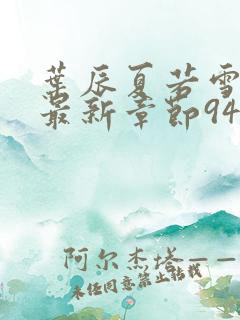 葉辰夏若雪
最新章節94
阿尔杰塔——
未经同意禁止转载